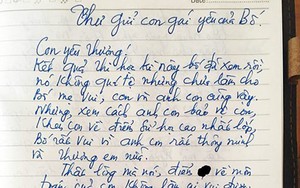 Thư gửi con gái yêu của Bố.
Con yêu thương!
Kết quả thi học kì này bố đã xem rồi,
nó không quá tệ nhưng chưa làm cho
Bố mẹ vui, con và anh con cũng vậy.
Nhưng, xem cách anh con bảo vệ con,
Khen con về điểm cao nhất lớp,
Bố rất vui vì anh con rất thông minh
và thương em nữa.
Thật lòng mà nói, điểm về môn
toán của con không làm ai vui